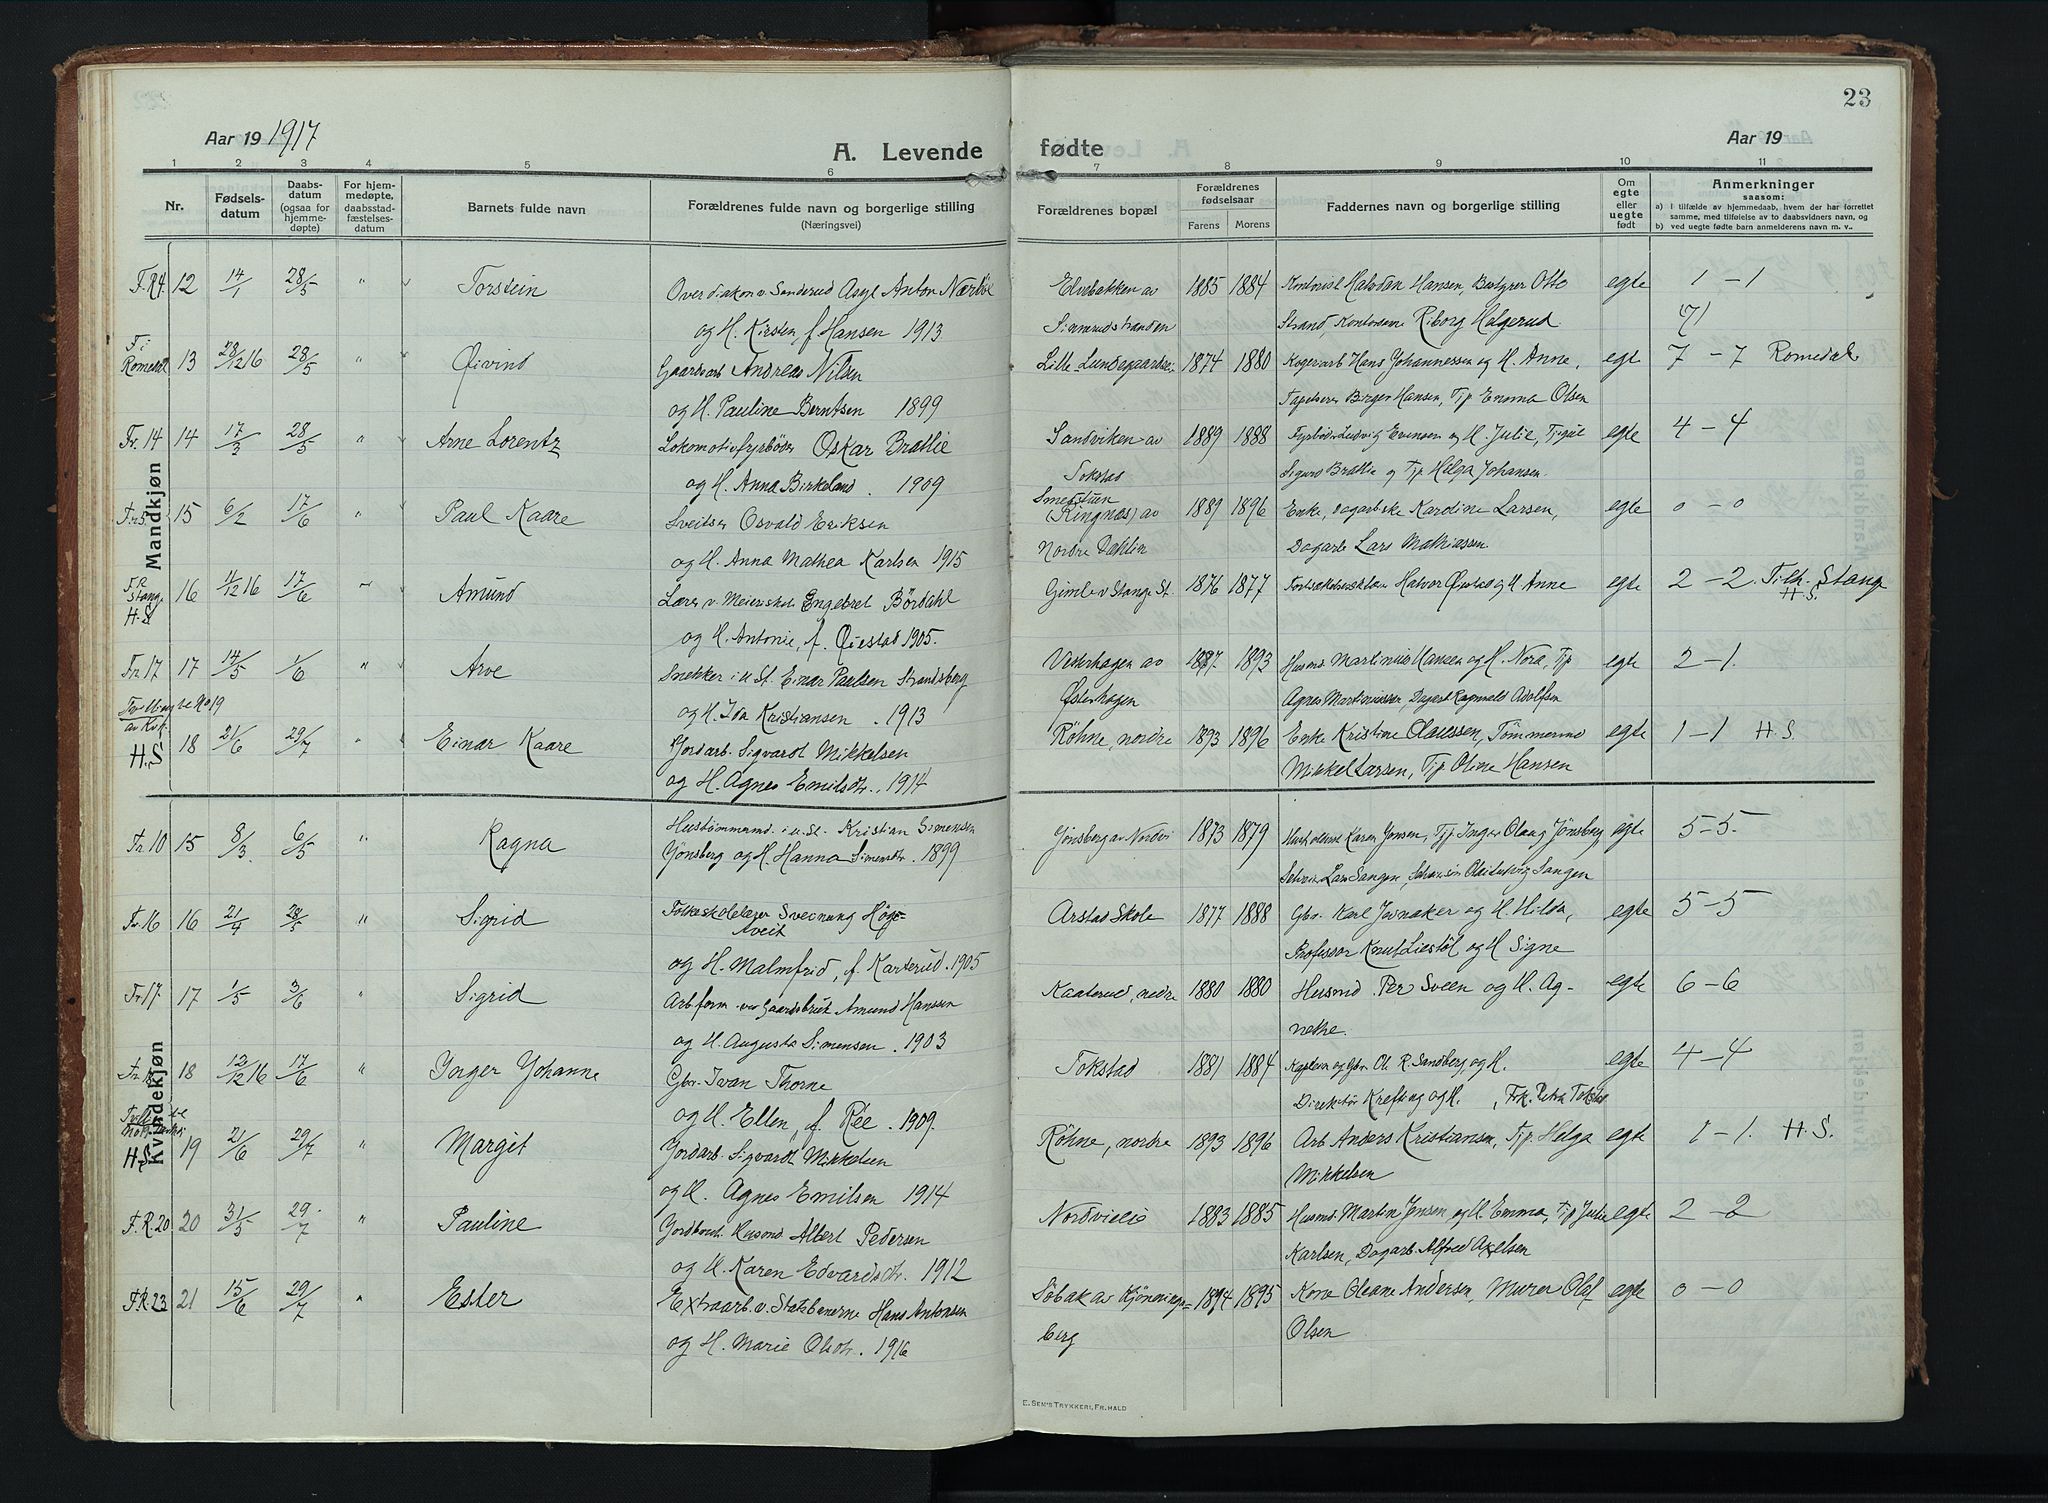 23
Aar 19 1917
Aar 19
A. Levende fødte
1 2 3 4 5 6 7 8 9 10 11
Nr.
Fødsels-
datum
Daabs-
datum
(ogsaa for
hjemme-
døpte)
For hjem-
medøpte,
daabsstad-
fæstelses-
datum
Barnets fulde navn
Forældrenes fulde navn og borgerlige stilling
(Næringsvei)
Forældrenes bopæl
Forældrenes
fødselsaar
Farens Morens
Faddernes navn og borgerlige stilling
Om
egte
eller
uegte
født
Anmerkninger
saasom:
a) I tilfælde av hjemmedaab, hvem der har forrettet
samme, med tilføielse av to daabsvidners navn, og
b) ved uegte fødte barn anmelderens navn m. v..
Mandkjøn
12 14/1 28/5 " Torstein Overdiakon v. Sanderud Asyl Anton Elvebakken av 1885 1884 Halvdan Hansen, Bestyrer Otto egte 1 – 1
og H. Kirsten, f. Hansen 1913 Strand, Riborg Helgerud
F. i
Romedal 13 28/12 16 28/5 " Øivind Gaardsarb Andreas Nilsen Lille-Lundsgaards 1874 1880 Hans Johannessen og H. Anne, egte 7 – 7 Romedal
og H. Pauline Berntsen 1899 Tapetserer Birger Hansen, Tjp Emma Olsen
Fr. 14 14 17/3 28/5 " Arne Lorentz Lokomotivfyrbøder Oskar Brathe Sandviken av 1889 1888 Fyrbøder Ludvig Evensen og H. Julie, egte 4 – 4
og H. Anna Birkeland. 1909 Tokstad Sigurd Brathe og Tjp Helga Johansen.
15 6/2 17/6 " Paul Kaare Sveitser Osvald Eriksen Smedstuen (Ringnæs) av 1889 1896 Enke, Karoline Larsen, egte 0 – 0
og H. Anna Mathea Karlsen 1915 Nordre Dahlin Lars Mathiassen.
F.R.
Stange
H.S 16 11/12 16 17/6 Amund Lærer v. Meieriskol. Engebret Børdahl Gimle v Stange St. 1876 1877 Halvor Øiestad og H Anne egte 2 – 2. Tilh. Stange
H.S.
og H. Antonie, f. Øiestad 1905.
Fr. 17 17 14/5 1/6 " Arve Snekker i u. St. Einar Paulsen Strandsberg Vesterhagen av 1893 Husmd Martinius Hansen og H. Nora, Tjp egte 2 – 1.
og H. Ida Kristiansen . 1913 Østerhagen Agnes Martinussen, Ragnvald Adolfsen
H.S 18 21/6 29/7 " Einar Kaare Jordarb. Sigvardt Mikkelsen Røhne, nordre 1893 1896 Enke Kristine Olaussen, Tømmermd egte 1 – 1 H.S.
og H. Agnes Emilsdtr. 1914 Mikkel Larsen, Tjp Oline Hansen
Kvindekjøn
Fr 10 15 8/3 6/5 " Ragna Hustømmermd. i u. St. Kristian Simensen Jønsberg av Nordvi 1873 1879 Karen Jensen, Tjp. Inger Olaug Jønsberg egte 5 – 5.
Jønsberg og H. Hanna Simensdtr. 1899 Lars Sangen,
Fr. 16 16 21/4 28/5 " Sigrid Folkeskolelærer Sveinung Høg- Arstad Skole 1877 1888 Gbr. Karl Jevnaker og H. Hilda, egte 5 – 5
Aveit
og H. Malmfrid, f. Karterud. 1905 Professor Knut Liestøl og H Signe
Fr 17. 17 1/5 3/6 " Sigrid Arbform. ved Gaardsbruk Amund Hanssen Kaaterud, nedre 1880 1880 Husmd Per Sveen og H. Ag- egte 6 – 6
og H. Augusta Simensen. 1903 nethe.
Fr 18 18 12/12 16 17/6 " Inger Johanne Gbr. Ivan Thorne Tokstad 1881 1884 Kaptein og Gbr. Ol. R. Sandberg, og H. egte 4 – 4
og H. Ellen, f. Rée. 1909. Direktør Krefting og H. , Frk. Petra Tokstad
H.S. 19 21/6 29/7 " Margit Jordarb. Sigvardt Mikkelsen Røhne, nordre 1893 1896 Arb Anders Kristiansen, Tjp. Helga egte 1 – 1. H.S.
og H. Agnes Emilsen 1914 Mikkelsen
F.R. 20 20 31/5 29/7 " Pauline Husmd Albert Pedersen Nordvieie 1883 1885 Husmd. Martin Jensen og H. Emma, Tjp Julie egte 2 – 2
og H. Karen Edvardsdtr. 1912 Karlsen, Dagarb. Alfred Axelsen
F.R. 23 21 15/6 29/7 " Ester Extraarb. v. Statsbanerne Hans Antonsen Søbak av 1894 1895 Kone Oleane Andersen, Murer Olof egte 0 – 0
og H. Marie Olsdtr. 1916 berg Olsen
E. SEM'S TRYKKERI, FR.HALD